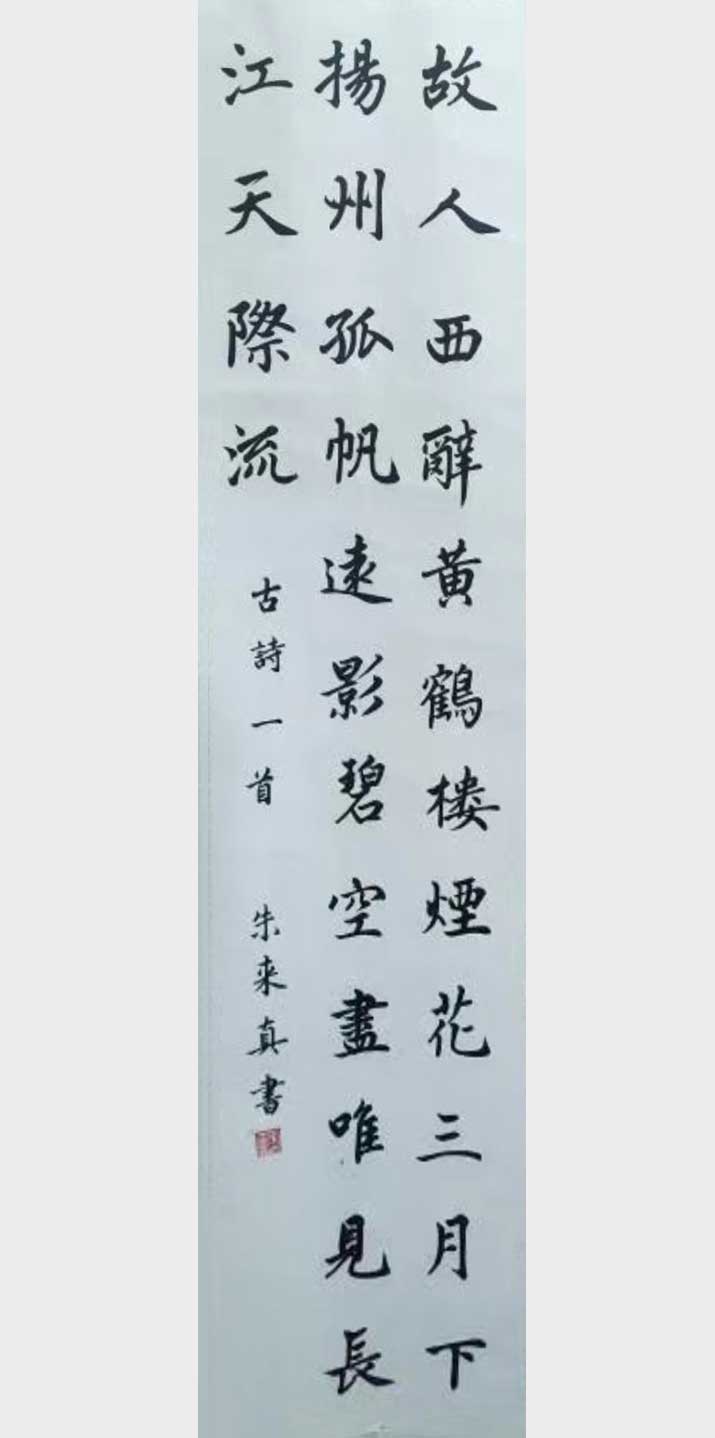 故人西辭黄鶴楼煙花三月下
揚州孤帆遠影碧空盡唯見長
江天際流
古詩一首
朱来真書